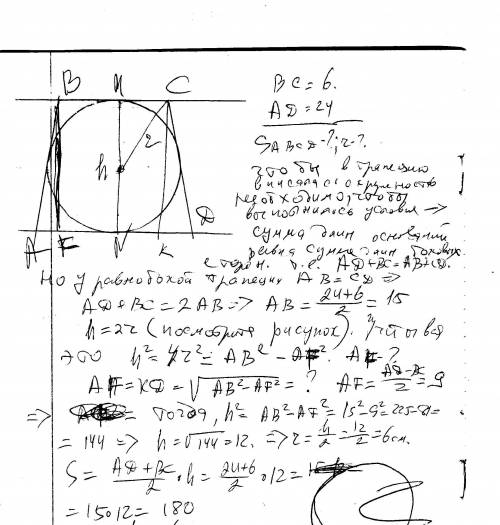 B И C
BC = 6.
AD = 24
S ABCD - ?; r - ?
r
h
Чтобы в трапецию
вписалась окружность
необходимо, чтобы
выполнялось условие →
сумма длин оснований
равна сумме длин боковых
A F N K D
сторон. т.е. AD+BC=AB+CD.
Но у равнобокой трапеции AB = CD ⇒
AD+BC = 2AB ⇒ AB = 24+6/2 = 15
h = 2r (посмотрите рисунок). Учтывая
это h² = 4r² = AB² - AF². AF - ?
AF = KD = √AB²-AF² = ? AF = AD-BC/2 = 9
⇒ тогда, h² = AB²-AF² = 15²-9² = 225-81=
= 144 ⇒ h = √144 = 12. ⇒ r = h/2 = 12/2 = 6 см.
S = AD+BC/2 · h = 24+6/2 · 12 =
= 15·12 = 180